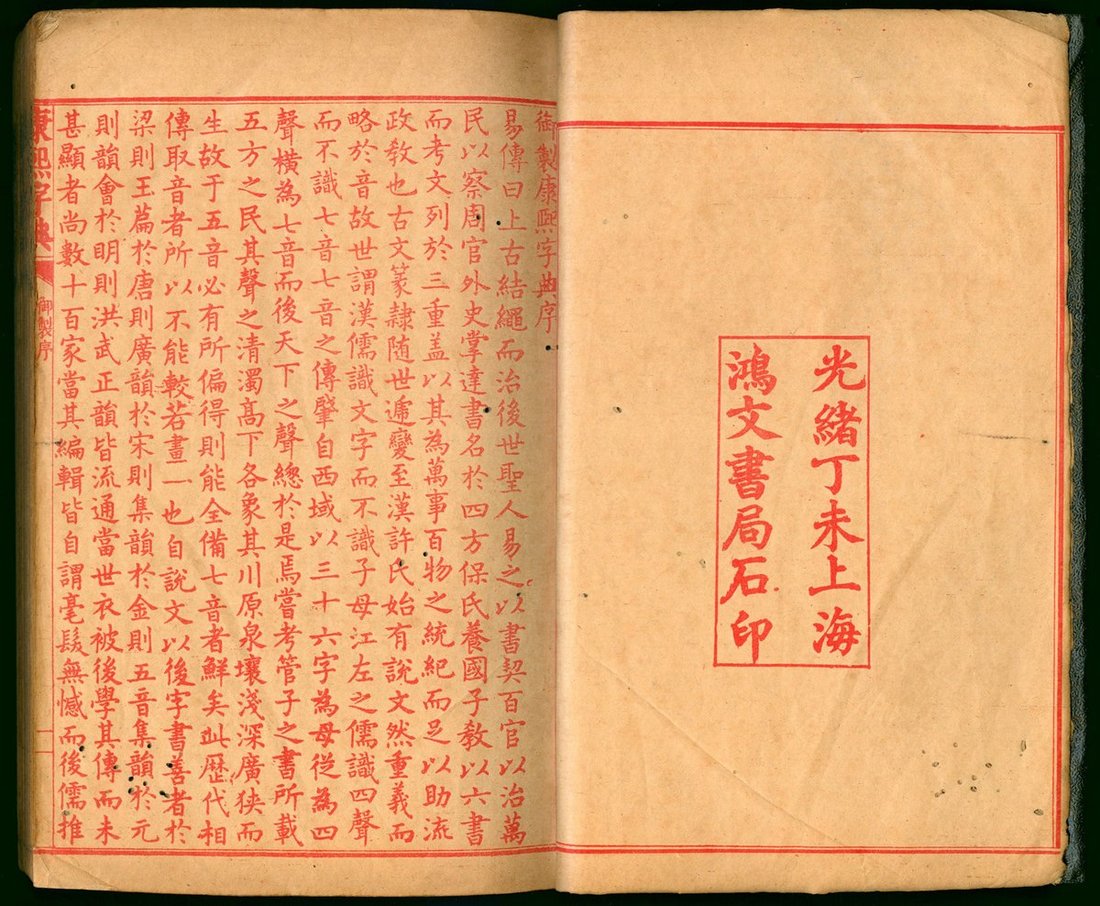 光緒丁未上海
鴻文書局石印
御製康熙字典序
易傳曰上古結繩而治後世聖人易之以書契百官以治萬
民以察周官外史掌達書名於四方保氏養國子教以六書
而考文列於三重盖以其為萬事百物之統紀而足以助流
政教也古文篆隸随世遞變至漢許氏始有說文然重義而
略於音故世謂漢儒識文字而不識子母江左之儒識四聲
而不識七音七音之傳肇自西域以三十六字為母從為四
聲橫為七音而後天下之聲總於是焉嘗考管子之書所載
五方之民其聲之清濁高下各象其川原泉壤淺深廣狹而
生故于五音必有所偏得則能全備七音者鮮矣此歷代相
傳取音者所以不能較若畫一也自說文以後字書善者於
梁則玉篇於唐則廣韻於宋則集韻於金則五音集韻於元
則韻會於明則洪武正韻皆流通當世衣被後學其傳而未
甚顯者尚數十百家當其編輯皆自謂毫髮無憾而後儒推
康熙字典
御製序
一